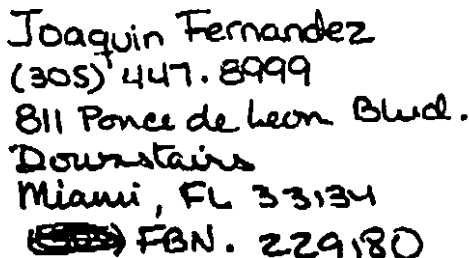 Joaquin Fernandez
(305) 447.8999
811 Ponce de Leon Blvd.
Downstairs
Miami, FL 33134
FBN. 229180